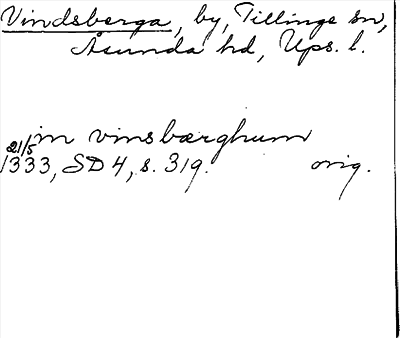 Vindsberga, by, Tillinge sn,
Åsunda hd, Ups. l.
in vinsbærghum
21/5 1333, SD 4, s. 319. orig.